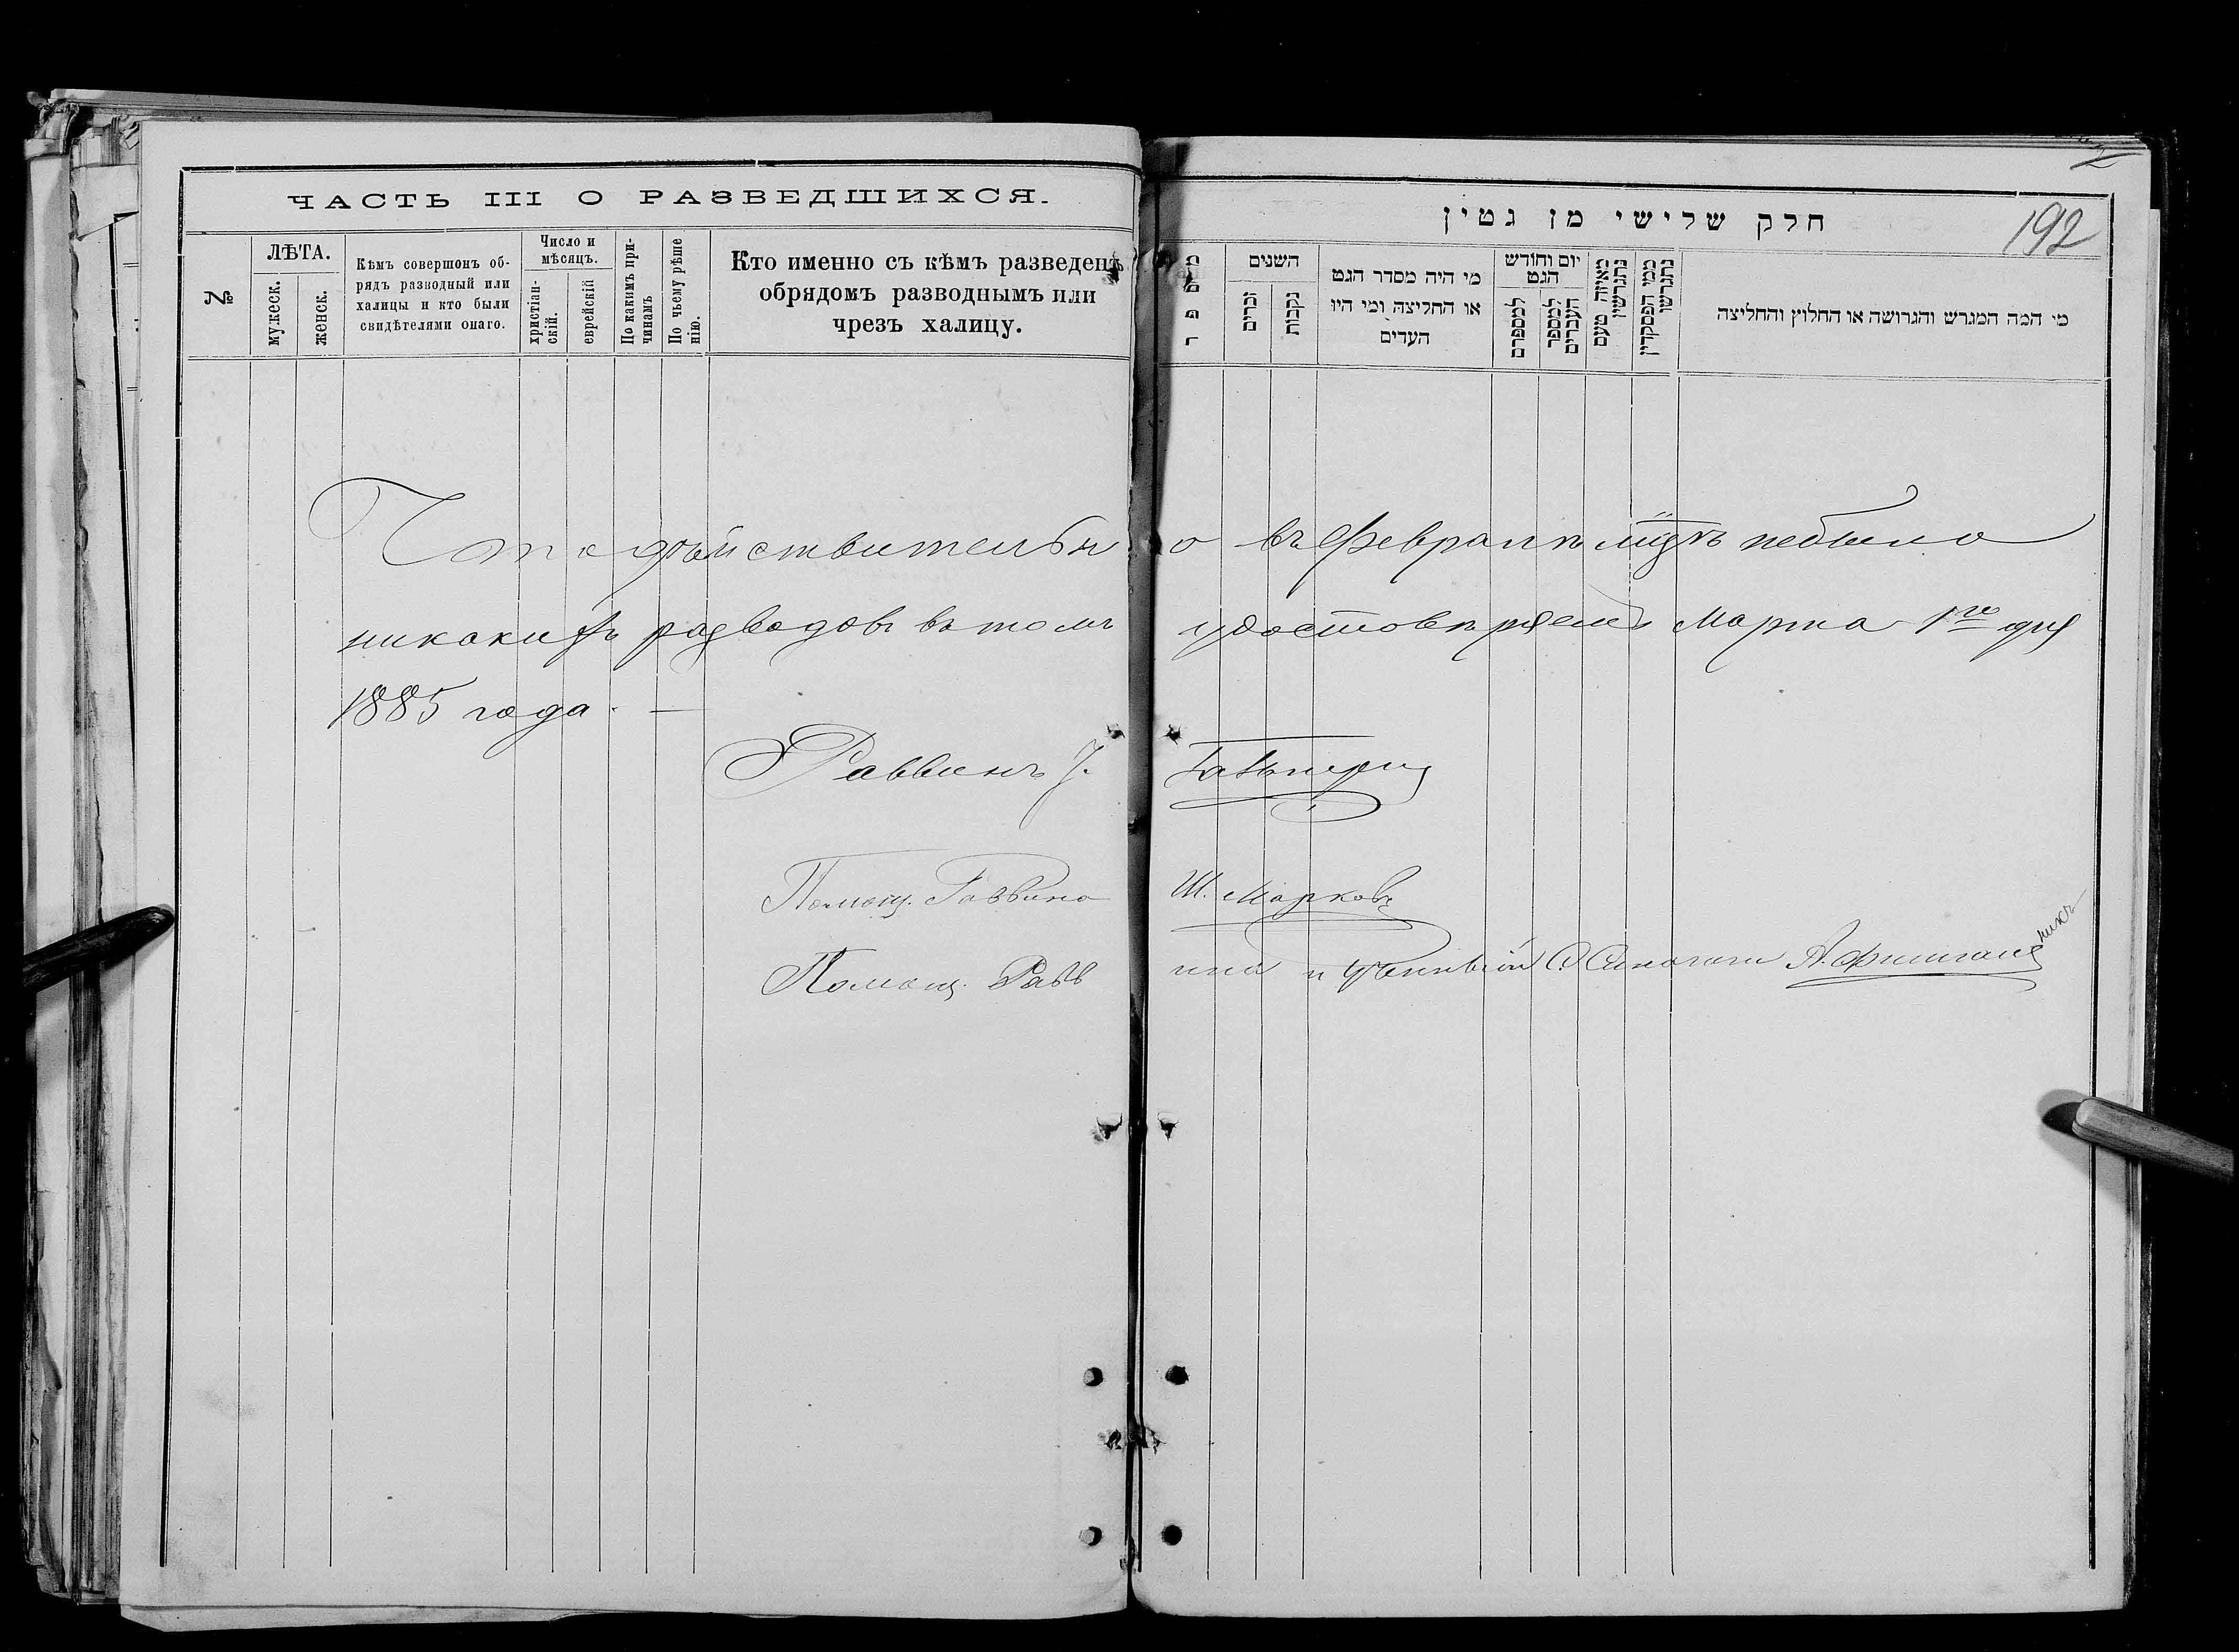 ЧАСТЬ III О РАЗВЕДШИХСЯ.
№
ЛѢТА.
мужеск.
женск.
Кѣмъ совершонъ об-
рядъ разводный или
халицы и кто были
свидѣтелями онаго.
Число и
мѣсяцъ.
христіан-
скій.
еврейскій
По какимъ при-
чинамъ
По чьему рѣше
нію.
Кто именно съ кѣмъ разведенъ
обрядомъ разводнымъ или
чрезъ халицу.
חלק שלישי מן גטין
192
השנים
זכרים
נקבות
מי היה מסדר הגט
או החליצה ומי היו
העדים
יום וחודש
הגט
למספרם
למספר
העברים
מאיזה טעם
נתגרשין
ממי הפסקדין
נתגרשו
מי המה המגרש והגרושה או החלוץ והחליצה
Что дѣйствительно въ Февралѣ мцѣ небыло
никакихъ разводовъ въ томъ удостовѣряемъ Марта 1го дня
1885 года. —
Раввинъ
Помощ. Раввина Ш. Марковъ
Помощ. Раввина и Ученный С. Синагоги А.